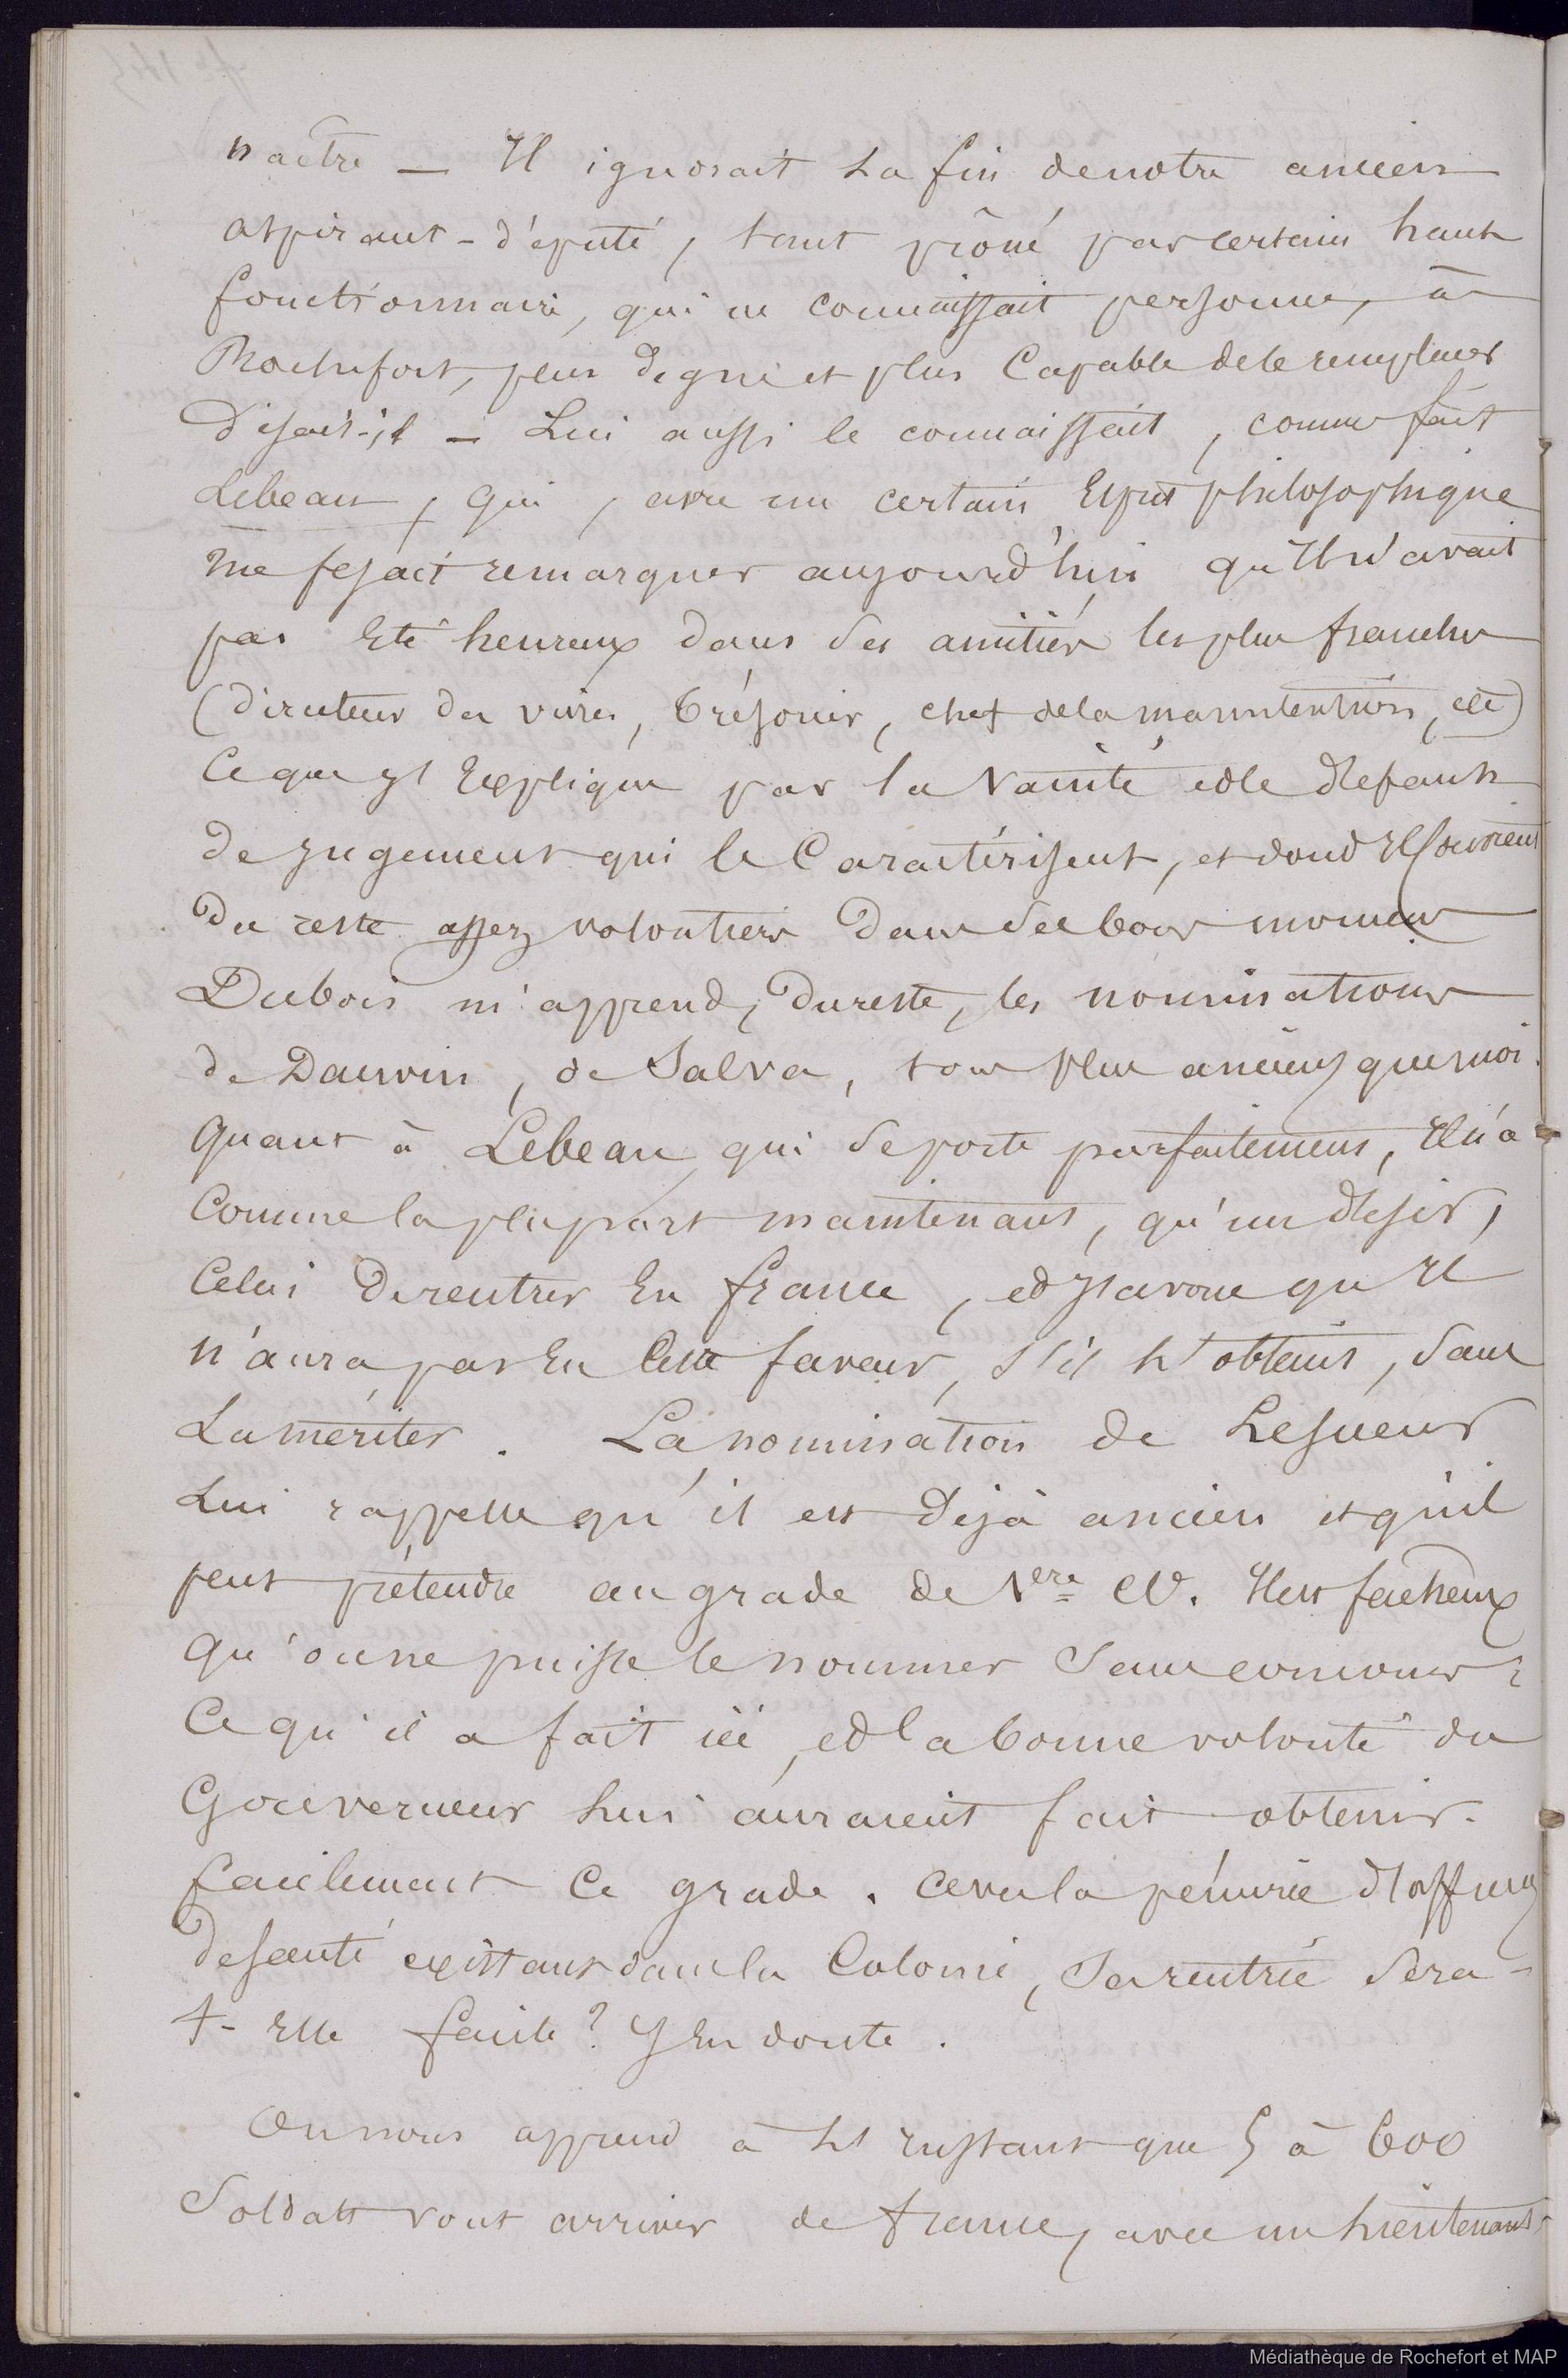 naître — Il ignorait la fin de notre ancien
aspirant-député, tant prôné par certain haut
fonctionnaire, qui ne connaissait personne, à
Rochefort, plus digne et plus capable de le remplacer
disait-il — Lui aussi le connaissait, comme fait
Lebeau, qui, avec un certain Esprit philosophique
me fesait remarquer aujourd'hui qu'Il n'avait
pas Eté heureux dans ses amitiés les plus franches
(directeur des vivres, trésorier, chef de la manutention, etc)
Ce que j'Explique par la Vanité et le défaut
de jugement qui le Caractérisent, et dont Il
du reste assez volontiers Dans ses bons moments
Dubois m'apprend, du reste, les nominations
de Dauvin, de Salva, tous plus anciens que moi.
Quant à Lebeau qui se porte parfaitement, Il n'a
Comme la plupart maintenant, qu'un désir,
Celui de rentrer En france, et j'avoue qu'Il
n'aura pas Eu cette faveur, s'il l'obtient, sans
La mériter. La nomination de Lesueur
Lui rappelle qu'il est déjà ancien et qu'il
peut prétendre au grade de 1ère Cl. Il est facheux
qu'on ne puisse le nommer sans concours;
Ce qu'il a fait ici, et la bonne volonté du
Gouverneur lui auraient fait obtenir
facilement Ce grade. Avec la pénurie d'officiers
de santé existant dans la Colonie, Sa rentrée Sera-
t-Elle facile? J'En doute.
On nous apprend à l'Instant que 5 à 600
Soldats vont arriver de France, avec un Lieutenant